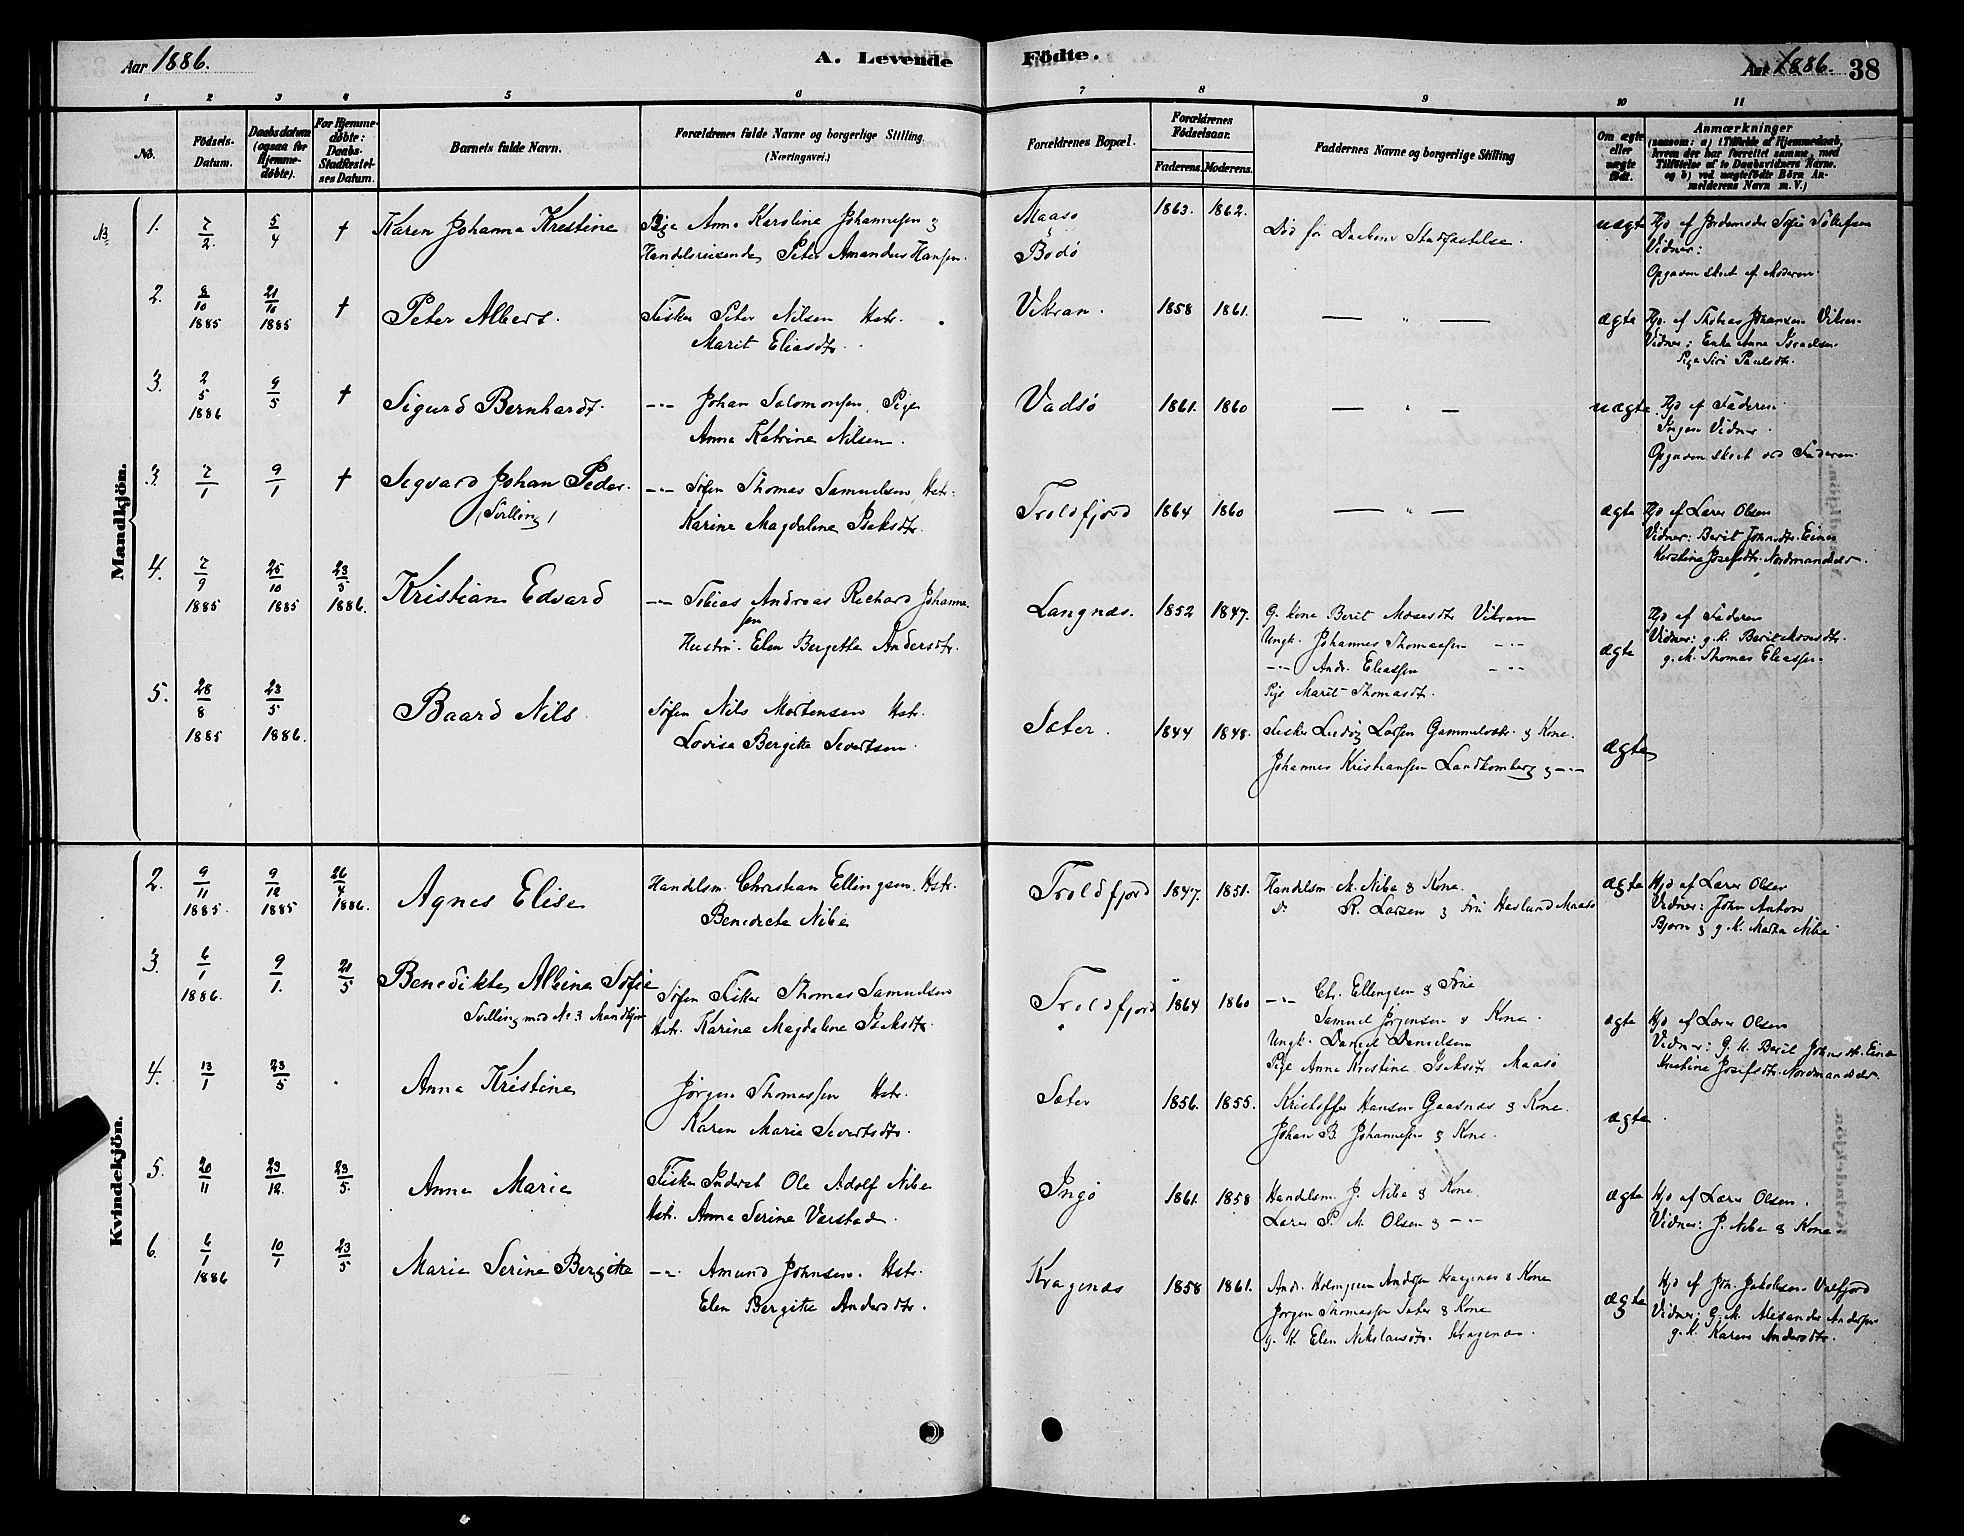 Aar 1886.
A. Levende
Födte.
Aar 1886. 38
1 2 3 4 5 6 7 8 9 10 11
No.
Födsels-
Datum.
Daabsdatum
(ogsaa for
Hjemme-
döbte).
For Hjemme-
döbte:
Daabs-
Stadfæstel-
ses Datum.
Barnets fulde Navn.
Forældrenes fulde Navne og borgerlige Stilling
(Næringsvei.)
Forældrenes Bopæl.
Forældrenes
Födselsaar.
Faderens. Moderens.
Faddernes Navne og borgerlige Stilling
Om ægte
eller
uægte
födt.
Anmærkninger
(saasom: a) i Tilfælde af Hjemmedaab,
hvem der har forrettet samme, med
Tilföielse af to Daabsvidners Navne.
og b) ved uægtefödte Börn An-
melderens Navn m. V.)
Mandkjön.
1. 7/2. 5/4 † Karen Johanna Kristine
Pige Anna Karolina Johannesen &
Handelsreisende Peter Amandus Hansen.
Maasø
&
Bodø
1863. 1862.
Død før Daabens Stadfæstelse.
uægte
Hjd af Jordemoder
Vidner:
Opgaven skeet af Moderen.
2. 8/10 1885 21/10 1885 † Peter Albert.
Fisker Peter Nilsen Hstr.
Marit Eliasdtr.
Vikran. 1858 1861.
— " —
ægte
Hjd. af Thobias Johansen Vikran
Vidner: Enke Anna Israelsen
Pige Siri Paulsdtr.
3. 2/5 1886 9/5 † Sigurd Bernhardt.
-"- Johan Salomonsen, Pige
Anna Katrine Nilsen.
Vadsø 1861. 1860
— " —
uægte.
Hjd af Faderen
Ingen Vidner.
Opgaven skeet ved Faderen.
3. 7/1 9/1 † Segvard Johan Peder.
(Tvilling)
-"- Søfin Thomas Samuelsen Hstr.
Karine Magdalena Isaksdtr.
Troldfjord 1864 1860
— " —
ægte
Hjd af Lærer Olsen
Vidner: Berit Johnsdtr. Eines
Kirstine Josefsdtr. Nordmandsæt.
4. 7/9 1885 25/10 1885 23/5 1886. Kristian Edvard
-"- Tobias Andreas Richard Johanne-
sen
Hustru. Elen Bergette Andersdtr.
Langnæs. 1852 1847.
G. Kone Berit Mosesdtr Vikran
Ungk. Johannes Thomassen -"-
-"- Andr. Eliassen -"-
Pige Marit Thomasdtr.
ægte
Hjd af Faderen
Vidner: g. K. Berit Mosesdtr.
g. M. Thomas Eliassen.
5. 28/8 1885 23/5 1886. Baard Nils
Søfin Nils Mortensen Hstr.
Lovise Bergitte Sivertsen.
Sæter. 1844 1848.
Fisker Ludvig Larsen & Kone.
Johannes Kristiansen & -"-
ægte
Kvindekjön.
2. 9/11 1885. 9/12 1885 26/4 1886. Agnes Elise
Handelsm. Christian Ellingsen. Hstr.
Benedicte Nibe
Troldfjord 1847. 1851.
Handelsm. M. Nibe & Kone.
Do R. Larsen & Frk Havlund Maasø
ægte
Hjd af Lærer Olsen
Vidner: John Anton
Bjørn & g. K. Marka Nibe.
3. 6/1 1886. 9/1. 21/5 Benedikte Albine Sofie
Tvilling med No 3 Mandkjøn
Søfin Fisker Thomas Samuelsen
Hstr. Karine Magdalene Isaksdtr.
Troldfjord 1864 1860
-"- Chr. Ellingsen & Frue
Samuel Jørgensen & Kone.
Ungk. Daniel Danielsen
Pige Anne Kristine Isaksdtr Maasø
ægte
Hjd af Lærer Olsen
Vidner: G. K. Berit Johnsdtr. Eines
Kristine Josefsdtr. Nordmandsæt.
4. 13/1 23/5 Anna Kristine
Jørgen Thomassen Hstr.
Karen Marie Sivertsdtr.
Sæter 1856. 1855.
Kristoffer Hansen Gaasnæs & Kone.
Johan B. Johannesen & Kone.
ægte
5. 20/11 23/12. 23/5. Anna Marie
Fisker Inderst Ole Adolf Nibe
Hstr. Anna Serine Varstad.
Ingø 1861. 1858
Handelsm. J. Nibe & Kone.
Lærer P. M. Olsen & -"-
ægte
Hjd af Lærer Olsen.
Vidner: J. Nibe & Kone
6. 6/1 1886 10/1 23/5 Marie Serine Bergitte
-"- Amund Johnsen. Hstr.
Elen Bergitte Andersdtr.
Kragenæs 1858 1861.
Andr. Holmgreen Andersen Kragenæs & Kone
Jørgen Thomassen Sæter & Kone
g. K. Elen Nikolaisdtr. Kragenæs.
ægte
Hjd af Joh. Jakobsen
Vidner; G. M. Alexander Andersen
g. K. Karen Andersdtr.